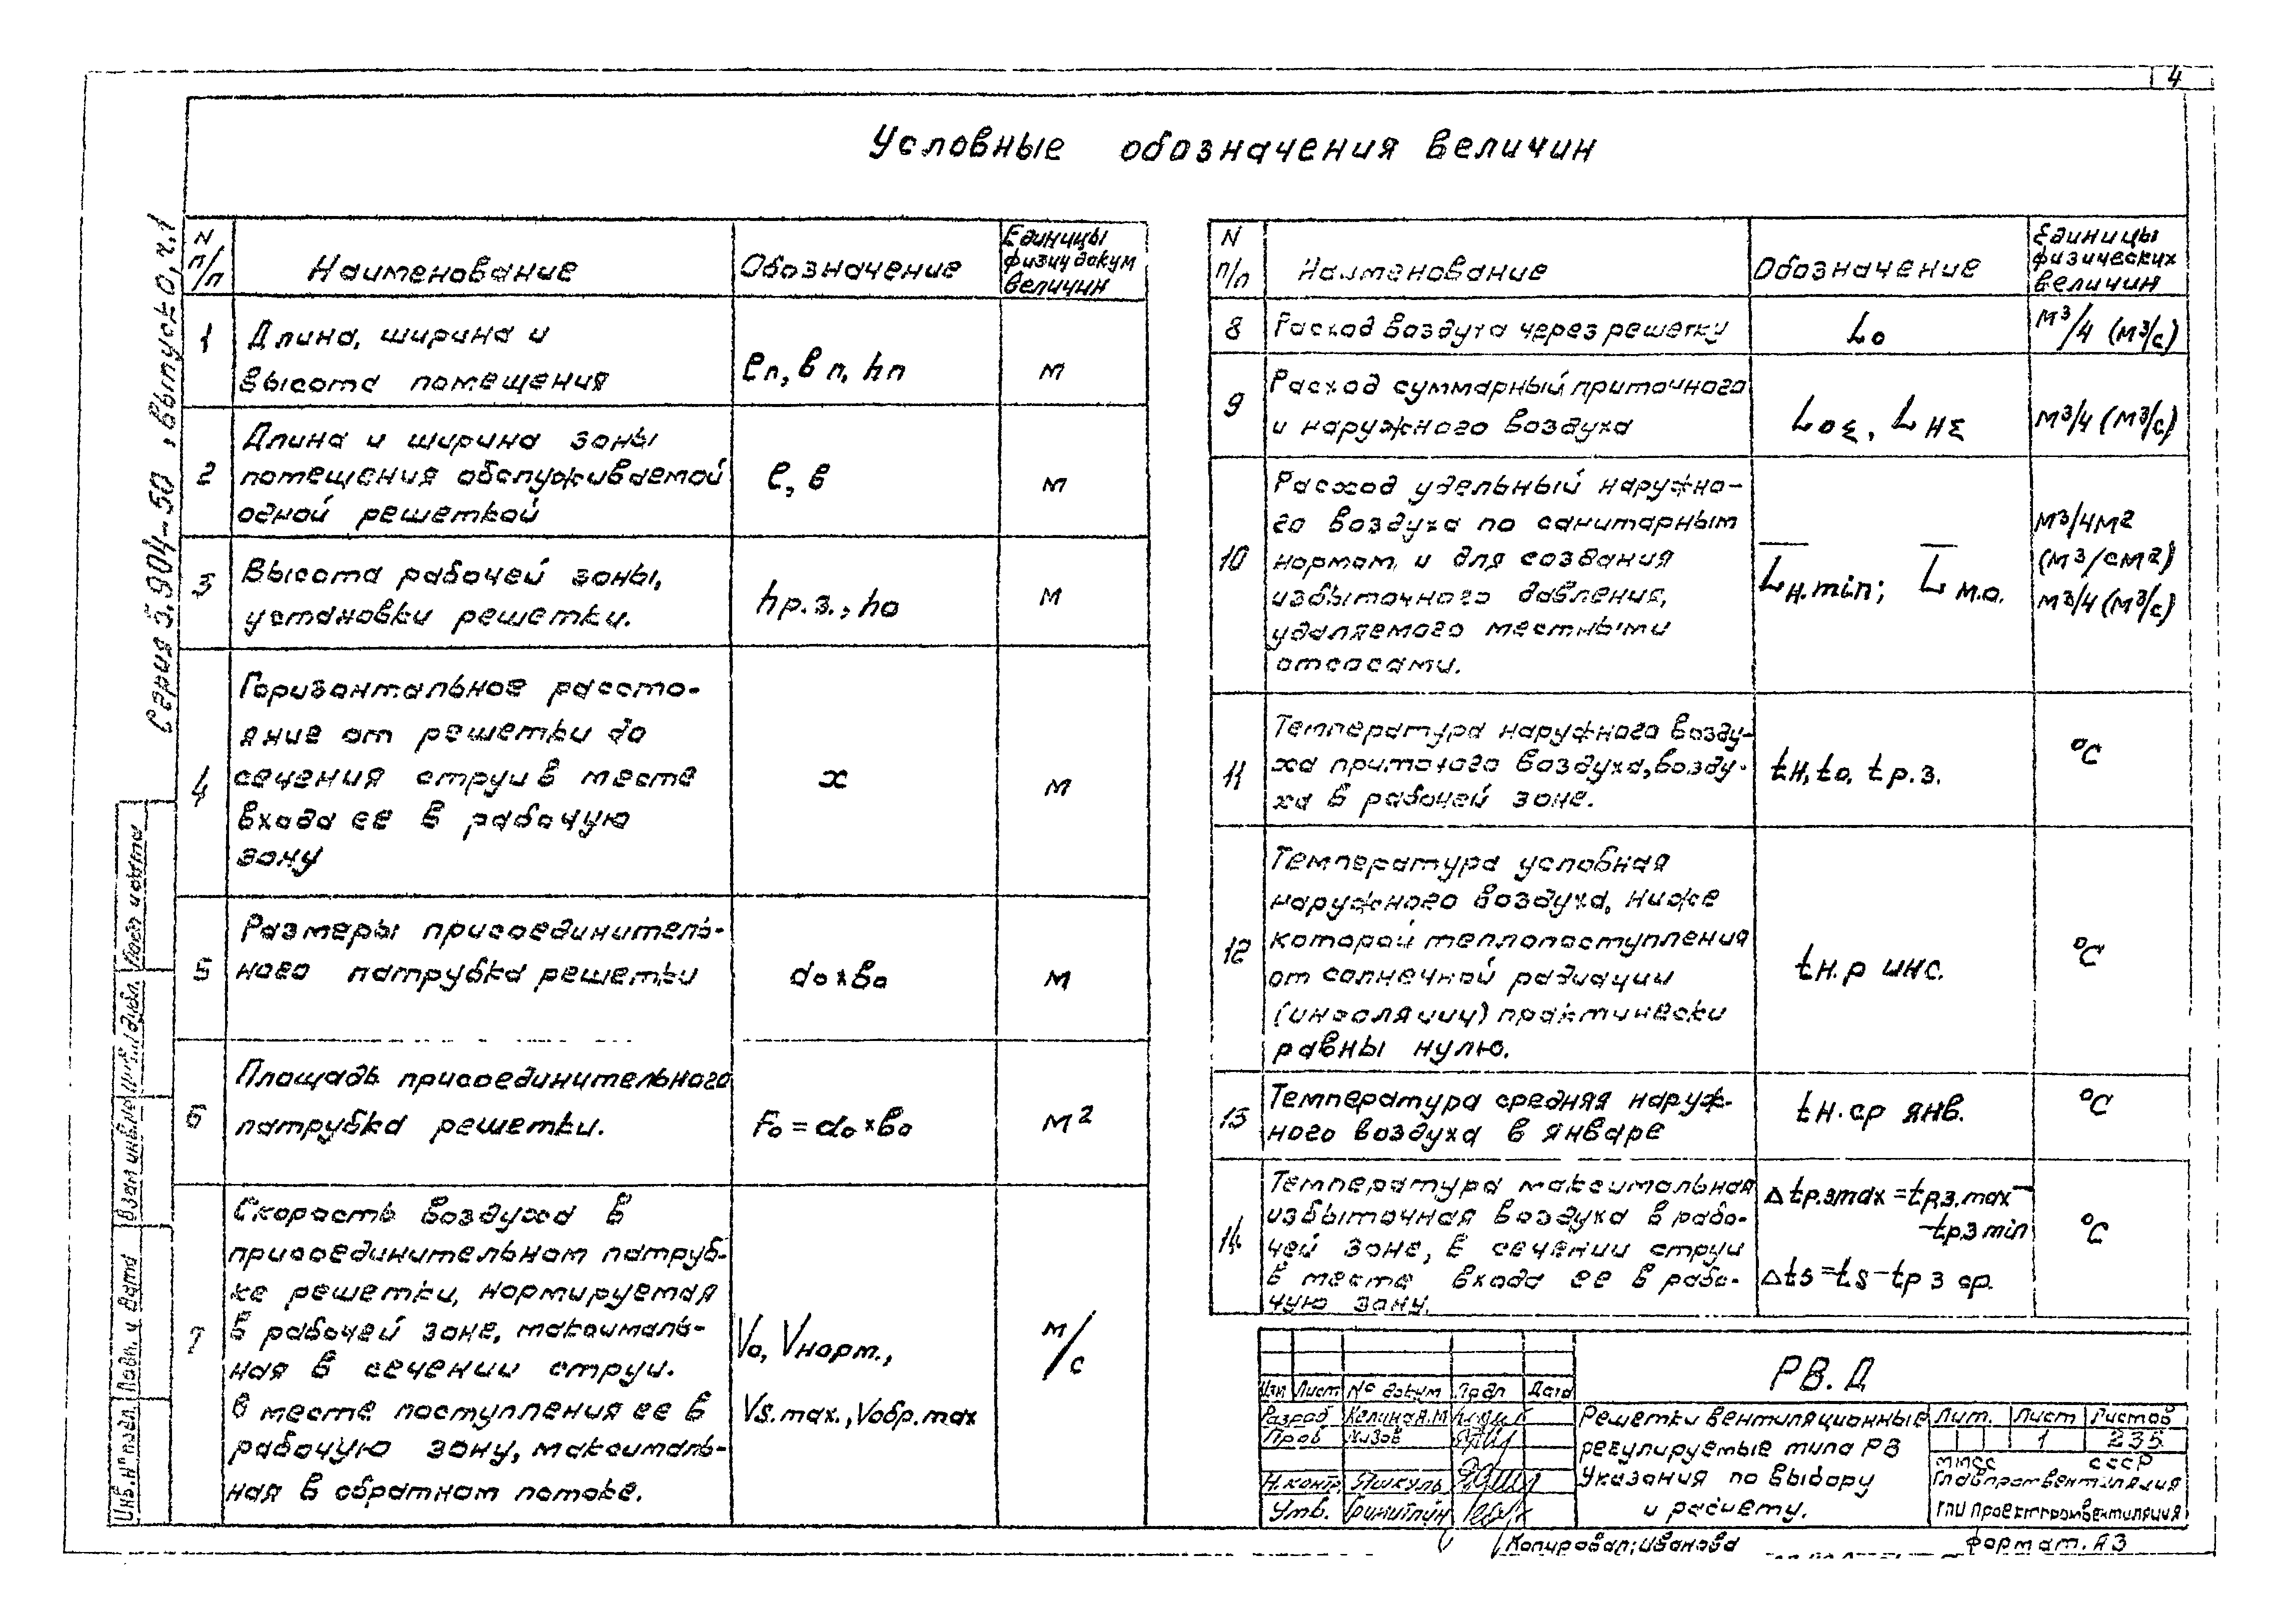 4
Условные обозначения величин
Серия 5.904-50, выпуск 0, ч.1
N п/п
Наименование
Обозначение
Единицы
физич докум
величин
1
Длина, ширина и
высота помещения
ℓп, вп, hп
м
2
Длина и ширина зоны
помещения обслуживаемой
одной решеткой
ℓ, в
м
3
Высота рабочей зоны,
установки решетки.
hр.з., h0
м
4
Горизонтальное рассто-
яние от решетки до
сечения струи в месте
входа ее в рабочую
зону
x
м
5
Размеры присоединитель-
ного патрубка решетки
a0 x в0
м
6
Площадь присоединительного
патрубка решетки.
F0 = a0 x в0
м2
7
Скорость воздуха в
присоединительном патруб-
ке решетки, нормируемая
в рабочей зоне, максималь-
ная в сечении струи.
в месте поступления ее в
рабочую зону, максималь-
ная в обратном потоке.
V0, Vнорм.,
Vs.max., Vобр.max
м/с
N п/п
Наименование
Обозначение
Единицы
физических
величин
8
Расход воздуха через решетку
L0
м3/ч (м3/с)
9
Расход суммарный приточного
и наружного воздуха
L0Σ, LнΣ
м3/ч (м3/с)
10
Расход удельный наружно-
го воздуха по санитарным
нормам и для создания
избыточного давления,
удаляемого местными
отсосами.
L̅н.min; L̅м.о.
м3/чм2
(м3/см2)
м3/ч (м3/с)
11
Температура наружного возду-
ха приточного воздуха, возду-
ха в рабочей зоне.
tн, t0, tр.з.
°С
12
Температура условная
наружного воздуха, ниже
которой теплопоступления
от солнечной радиации
(инсоляции) практически
равны нулю.
tн.р инс.
°С
13
Температура средняя наруж-
ного воздуха в январе
tн.ср янв.
°С
14
Температура максимальная
избыточная воздуха в рабо-
чей зоне, в сечении струи
в месте входа ее в рабо-
чую зону.
Δtр.зmax = tр.з.max -
- tр.з min
Δts = ts - tр з ср.
°С
РВ.Д
Изм Лист № докум Подп Дата
Разраб
Пров
Н.контр.
Утв.
Решетки вентиляционные
регулируемые типа РВ
Указания по выбору
и расчету.
Лит. Лист Листов
1 235
ММСС СССР
Главпромвентиляция
ГПИ Проектпромвентиляция
Копировал: Иванова
Формат. А3
Инв. № подл.
Подп. и дата
Взам инв. №